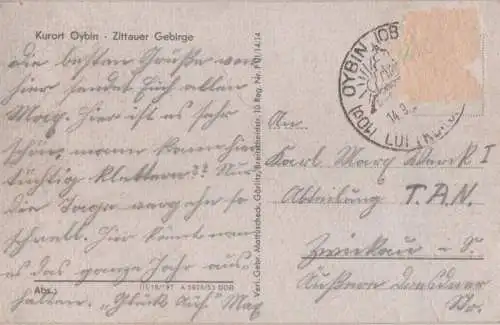 Kurort Oybin - Zittauer Gebirge
die besten Grüße von
hier sendet Euch allen
Max. Hier ist es sehr
schön, mann kann hier
tüchtig klettern?! Nur
die Tage vergehn so
schnell. Hier könnt man
es das ganze Jahr aus-
halten. "Glück auf." Max
Abs.:
III/18/197 A 3829/53 DDR
Verl. Gebr. Mattuscheck, Görlitz, Breitscheidstr. 10 Reg. Nr. F 01/14/14
OYBIN
LUFTKURO
14.9.
An
Karl Marx Werk I
Abteilung T.A.N.
Zwickau i. S.
Äußere Dresdner
Str.